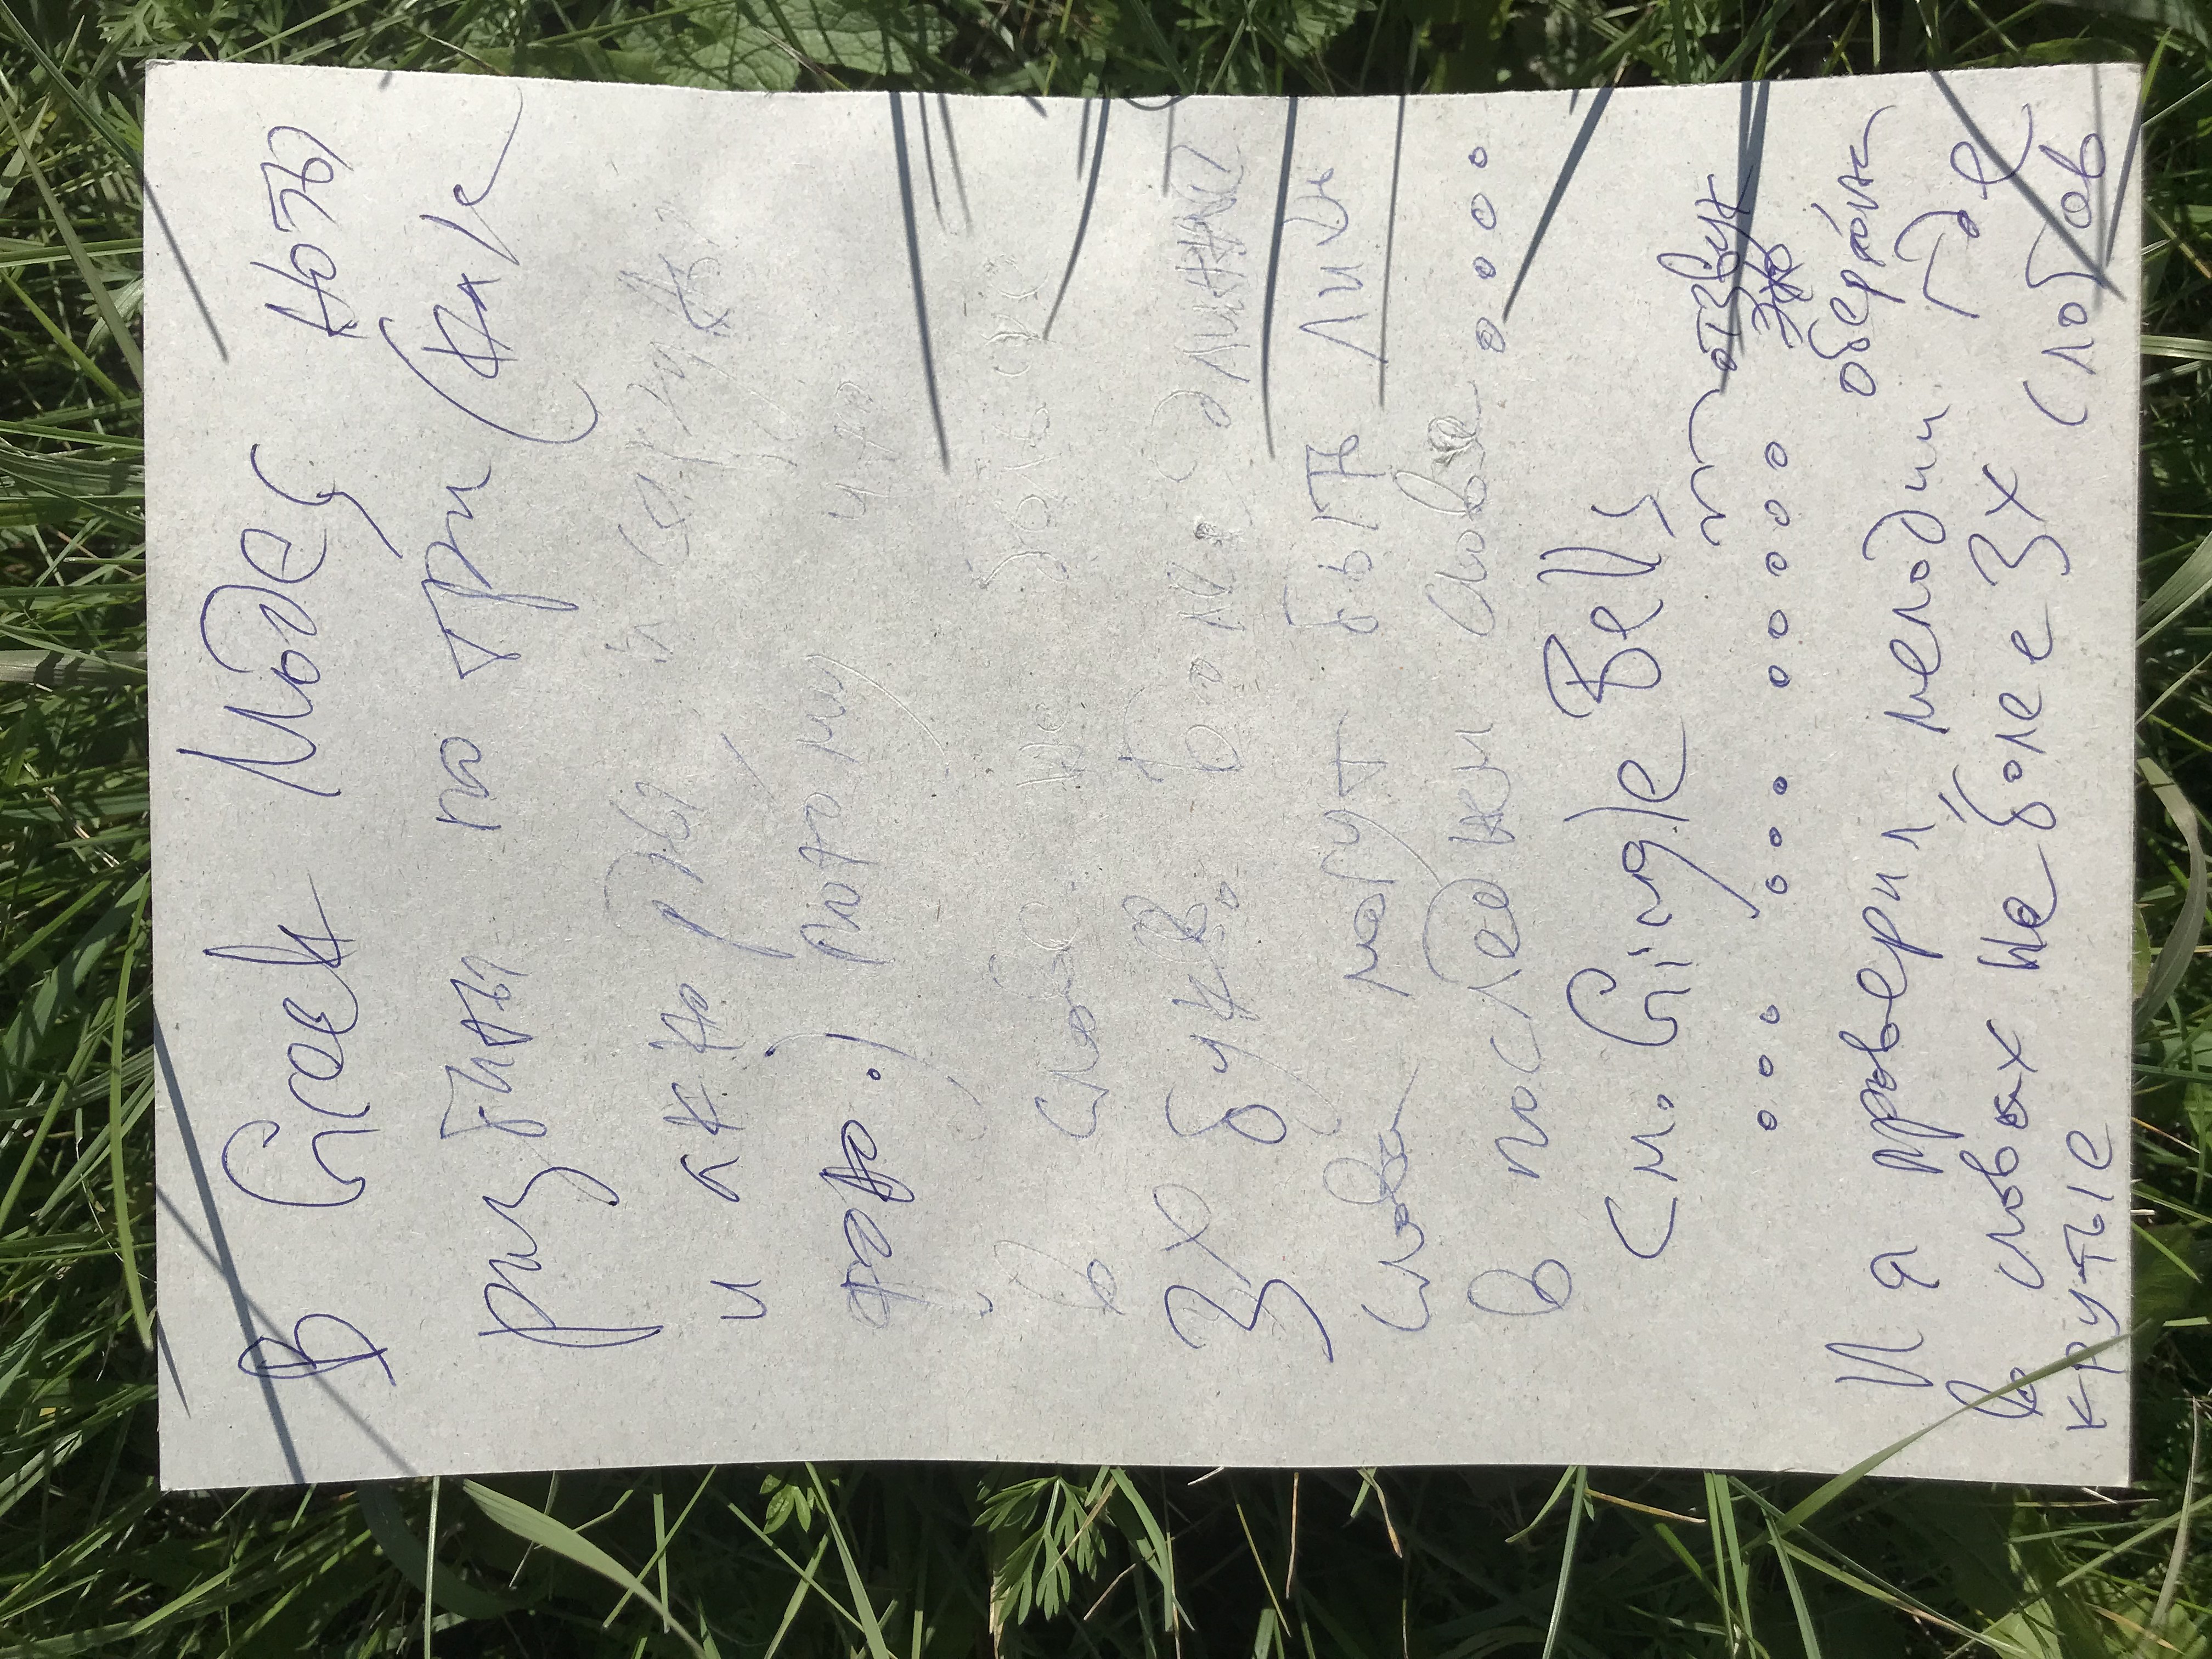 В Greek Modes ноты
разбиты по три (как
и аккорды, и
фото.) потому что
в слове не больше
3х букв. Более длинные
слова могут быть лишь
в последнем слове....
см. Gingle Bells
отзвук
... ... ..... эхо
обертона
И я проверил, мелодии где
в словах не более 3х слогов
крутые